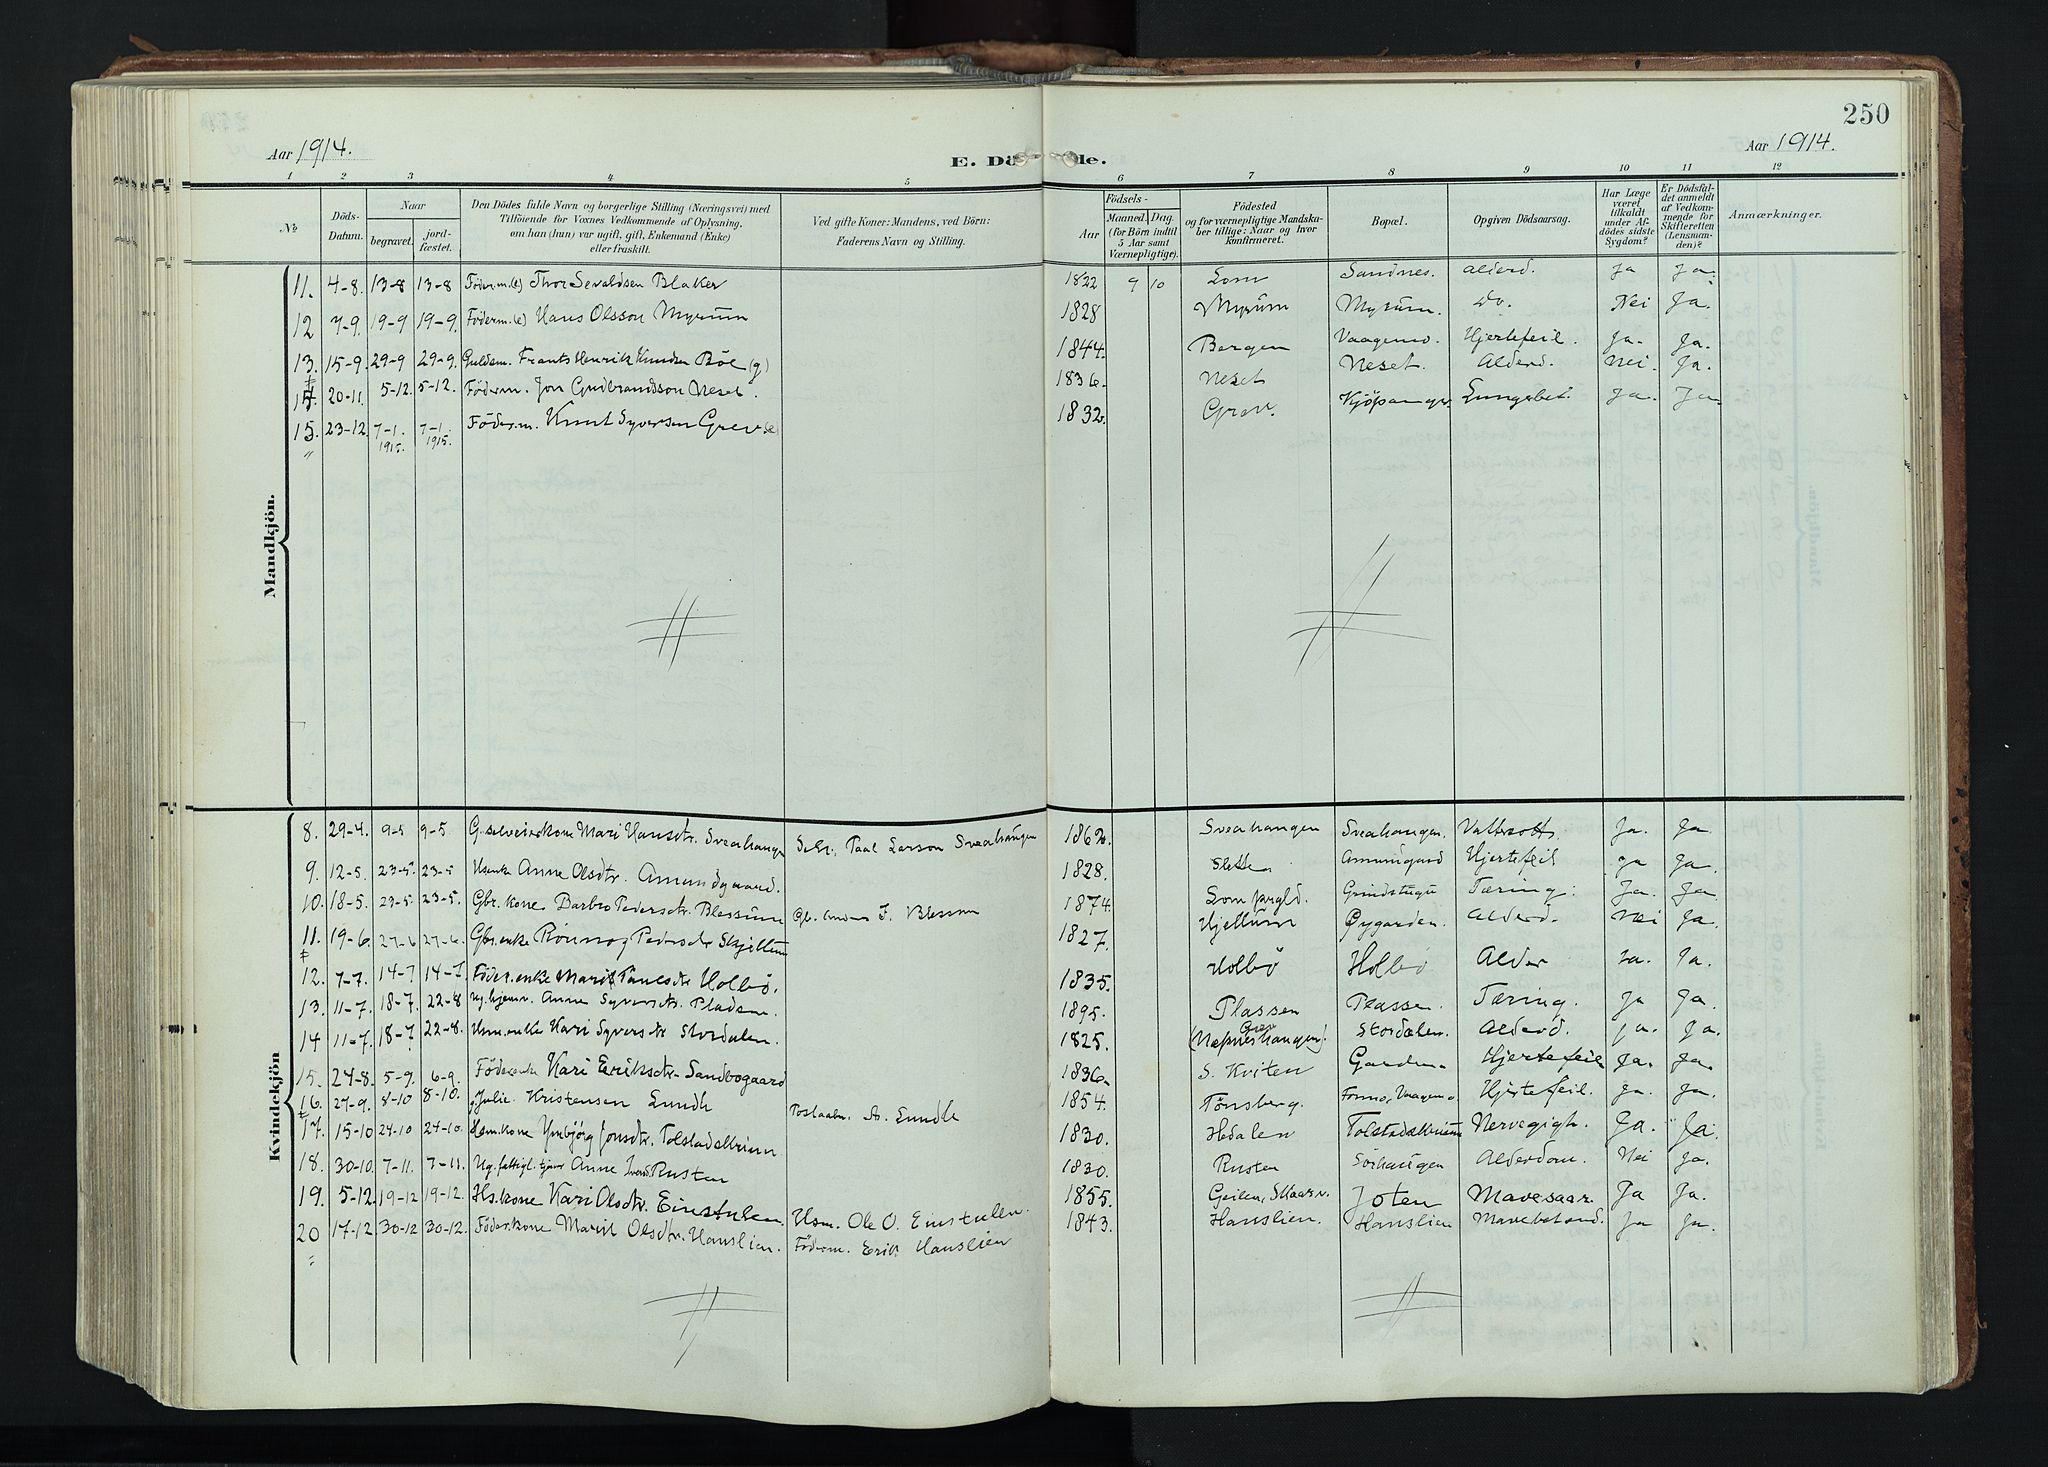 250
Aar 1914.
E. Dö de.
Aar 1914.
1 2 3 4 5 6 7 8 9 10 11 12
№
Döds-Datum.
Naar
begravet. jordfæstet.
Den Dödes fulde Navn og borgerlige Stilling (Næringsvei) med
Tilföiende for Voxnes Vedkommende af Oplysning,
om han (hun) var ugift, gift, Enkemand (Enke)
eller fraskilt.
Ved gifte Koner: Mandens, ved Börn:
Faderens Navn og Stilling.
Födsels-
Aar
Maaned. Dag.
(for Börn indtil
5 Aar samt
Værnepligtige).
Födested
og for værnepligtige Mandska-
ber tillige: Naar og hvor
konfirmeret.
Bopæl.
Opgiven Dödsaarsag.
Har Læge
været
tilkaldt
under Af-
dödes sidste
Sygdom?
Er Dödsfal-
det anmeldt
af Vedkom-
mende for
Skifteretten
(Lensman-
den)?
Anmærkninger.
Mandkjön.
11. 4-8. 13-8 13-8 Föderm.(e) Thor Sevaldsen Blaker 1822 9 10 Lom Sandnes. Alderd. Ja Ja.
12 7-9. 19-9 19-9. Föderm.(e) Hans Olsson Myrum 1828 Myrum Myrum. Do. Nei Ja.
13. 15-9. 29-9 29-9. Guldsm. Frants Henrik Knudsen Böe (g) 1844. Bergen Vaagemo. Hjertefeil. Ja. Ja.
14 20-11. 5-12. 5-12. Föderm. Jon Gudbrandsson Neset. 1836. Neset Neset. Alderd. Nei. Ja.
15. 23-12. 7-1. 1915. 7-1. 1915. Föderm. Knut Syversen Grev (e) 1832. Grev. Kjöpanger. Lungebet. Ja. Ja.
Kvindekjön
8. 29-4. 9-5 9-5 G. selveierkone Mari Hansdtr. Sveahaugen Selv. Paal Larson Sveahaugen 1862. Sveahaugen Sveahaugen. Vattersott. Ja. Ja.
9. 12-5. 23-5. 23-5 Husenke Anne Olsdtr. Amundgaard. 1828. Slette Amundgaard Hjertefeil Ja Ja.
10. 18-5. 23-5 23-5. Gbr. kone Barbro Pedersdtr. Blessum Gb. I. Blessom 1874. Lom prgld. Grindstugu Tæring. Ja. Ja
11. 19-6. 27-6 27-6. Gbr. enke Rönnog Pedersdtr Skjellum 1827. Hjellum Öygarden. Alderd. Nei Ja.
12. 7-7. 14-7 14-7 Föder.enke Marit Holbö. 1835. Holbö Holbö Alder Ja. Ja.
13. 11-7. 18-7. 22-8 ug. hjemv. Anne Syversdtr. Pladsen. 1895. Plassen Plassen. Tæring. Ja Ja.
14 11-7. 18-7 22-8. Husm.enke Kari Syversdtr Stordalen. 1825. Stordalen. Alderd. Ja. Ja.
15. 24-8. 5-9. 6-9. Föderenke Kari Eriksdtr. Sandbogaard 1836. S. Kviten Garden Hjertefeil Ja. Ja.
16. 27-9. 8-10 8-10. g. Julie Kristensen Lundh Postaabn. A. Lundh 1854. Tönsberg. Vaagemo Hjertefeil. Ja. Ja.
17. 15-10 24-10 24-10. Husm.kone Ymbjörg Jonsdtr. Tolstadkvien 1830. Hedalen Nervegigt. Ja. Ja.
18. 30-10. 7-11. 7-11. Ug. fattigl. tjener Anne Iversd. Rusten 1830. Rusten Sörhaugen Alderdom. Nei Ja.
19. 5-12 19-12 19-12. Hs. kone Kari Olsdtr. Einstulen Husm. Ole O. Einstulen. 1855. Geilen, Skaarv. Joten Mavesaar. Ja Ja.
20 17-12 30-12 30-12. Föderkone Marit Olsdtr. Hanslien. Föderm. Erik Hanslien 1843. Hanslien. Hanslien Mavebetænd. Ja Ja.